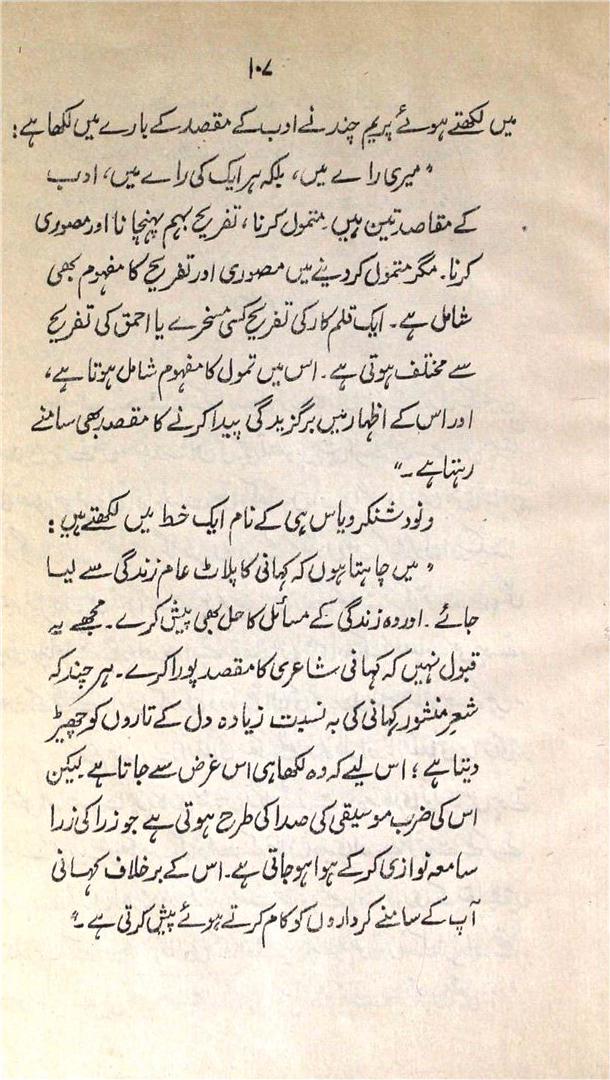 ۱۰۷
میں لکھتے ہوئے پریم چند نے ادب کے مقصد کے بارے میں لکھا ہے:
"میری رائے میں، بلکہ ہر ایک کی رائے میں، ادب
کے مقاصد تین ہیں۔ متمول کرنا، تفریح بہم پہنچانا اور مصوری
کرنا۔ مگر متمول کر دینے میں مصوری اور تفریح کا مفہوم بھی
شامل ہے۔ ایک قلم کار کی تفریح کسی مسخرے یا احمق کی تفریح
سے مختلف ہوتی ہے۔ اس میں تمول کا مفہوم شامل ہوتا ہے،
اور اس کے اظہار میں برگزیدگی پیدا کرنے کا مقصد بھی سامنے
رہتا ہے۔"
ونود شنکر ویاس ہی کے نام ایک خط میں لکھتے ہیں:
"میں چاہتا ہوں کہ کہانی کا پلاٹ عام زندگی سے لیا
جائے۔ اور وہ زندگی کے مسائل کا حل بھی پیش کرے۔ مجھے یہ
قبول نہیں کہ کہانی شاعری کا مقصد پورا کرے۔ ہر چند کہ
شعرِ منثور کہانی کی بہ نسبت زیادہ دل کے تاروں کو چھیڑ
دیتا ہے؛ اس لیے کہ وہ لکھا ہی اس غرض سے جاتا ہے لیکن
اس کی ضرب موسیقی کی صدا کی طرح ہوتی ہے جو زرا کی زرا
سامعہ نوازی کر کے ہوا ہو جاتی ہے۔ اس کے برخلاف کہانی
آپ کے سامنے کرداروں کو کام کرتے ہوئے پیش کرتی ہے۔"